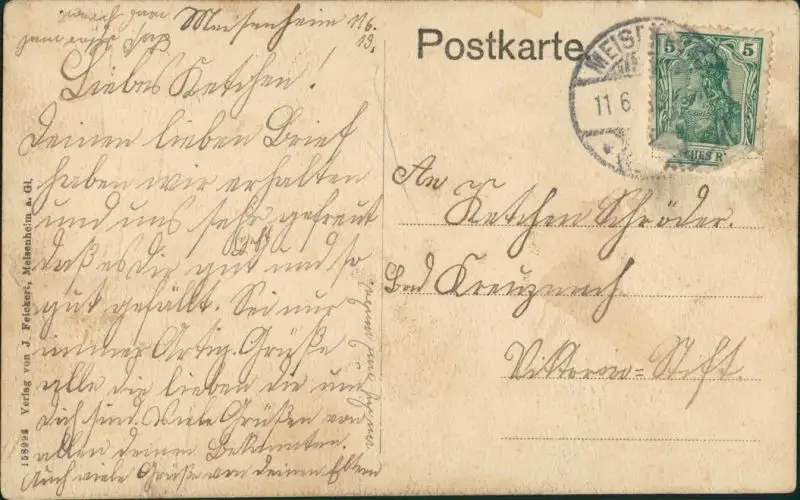 Meisenheim 11.6.
13.
Liebes Ketchen!
Deinen lieben Brief
haben wir erhalten
und uns sehr gefreut
daß es dir gut und so
gut gefällt. Sei nur
immer Artig. Grüße
alle die lieben die um
dich sind. Viele Grüßen von
allen deinen Bekannten.
Auch viele Grüße von deinen Eltern
158998 Verlag von J. Feickert, Meisenheim a. Gl.
Postkarte
MEISE
11 6
5 5
CHES R
An
Ketchen Schröder.
Bad Kreuznach.
Viktoria=Stift.